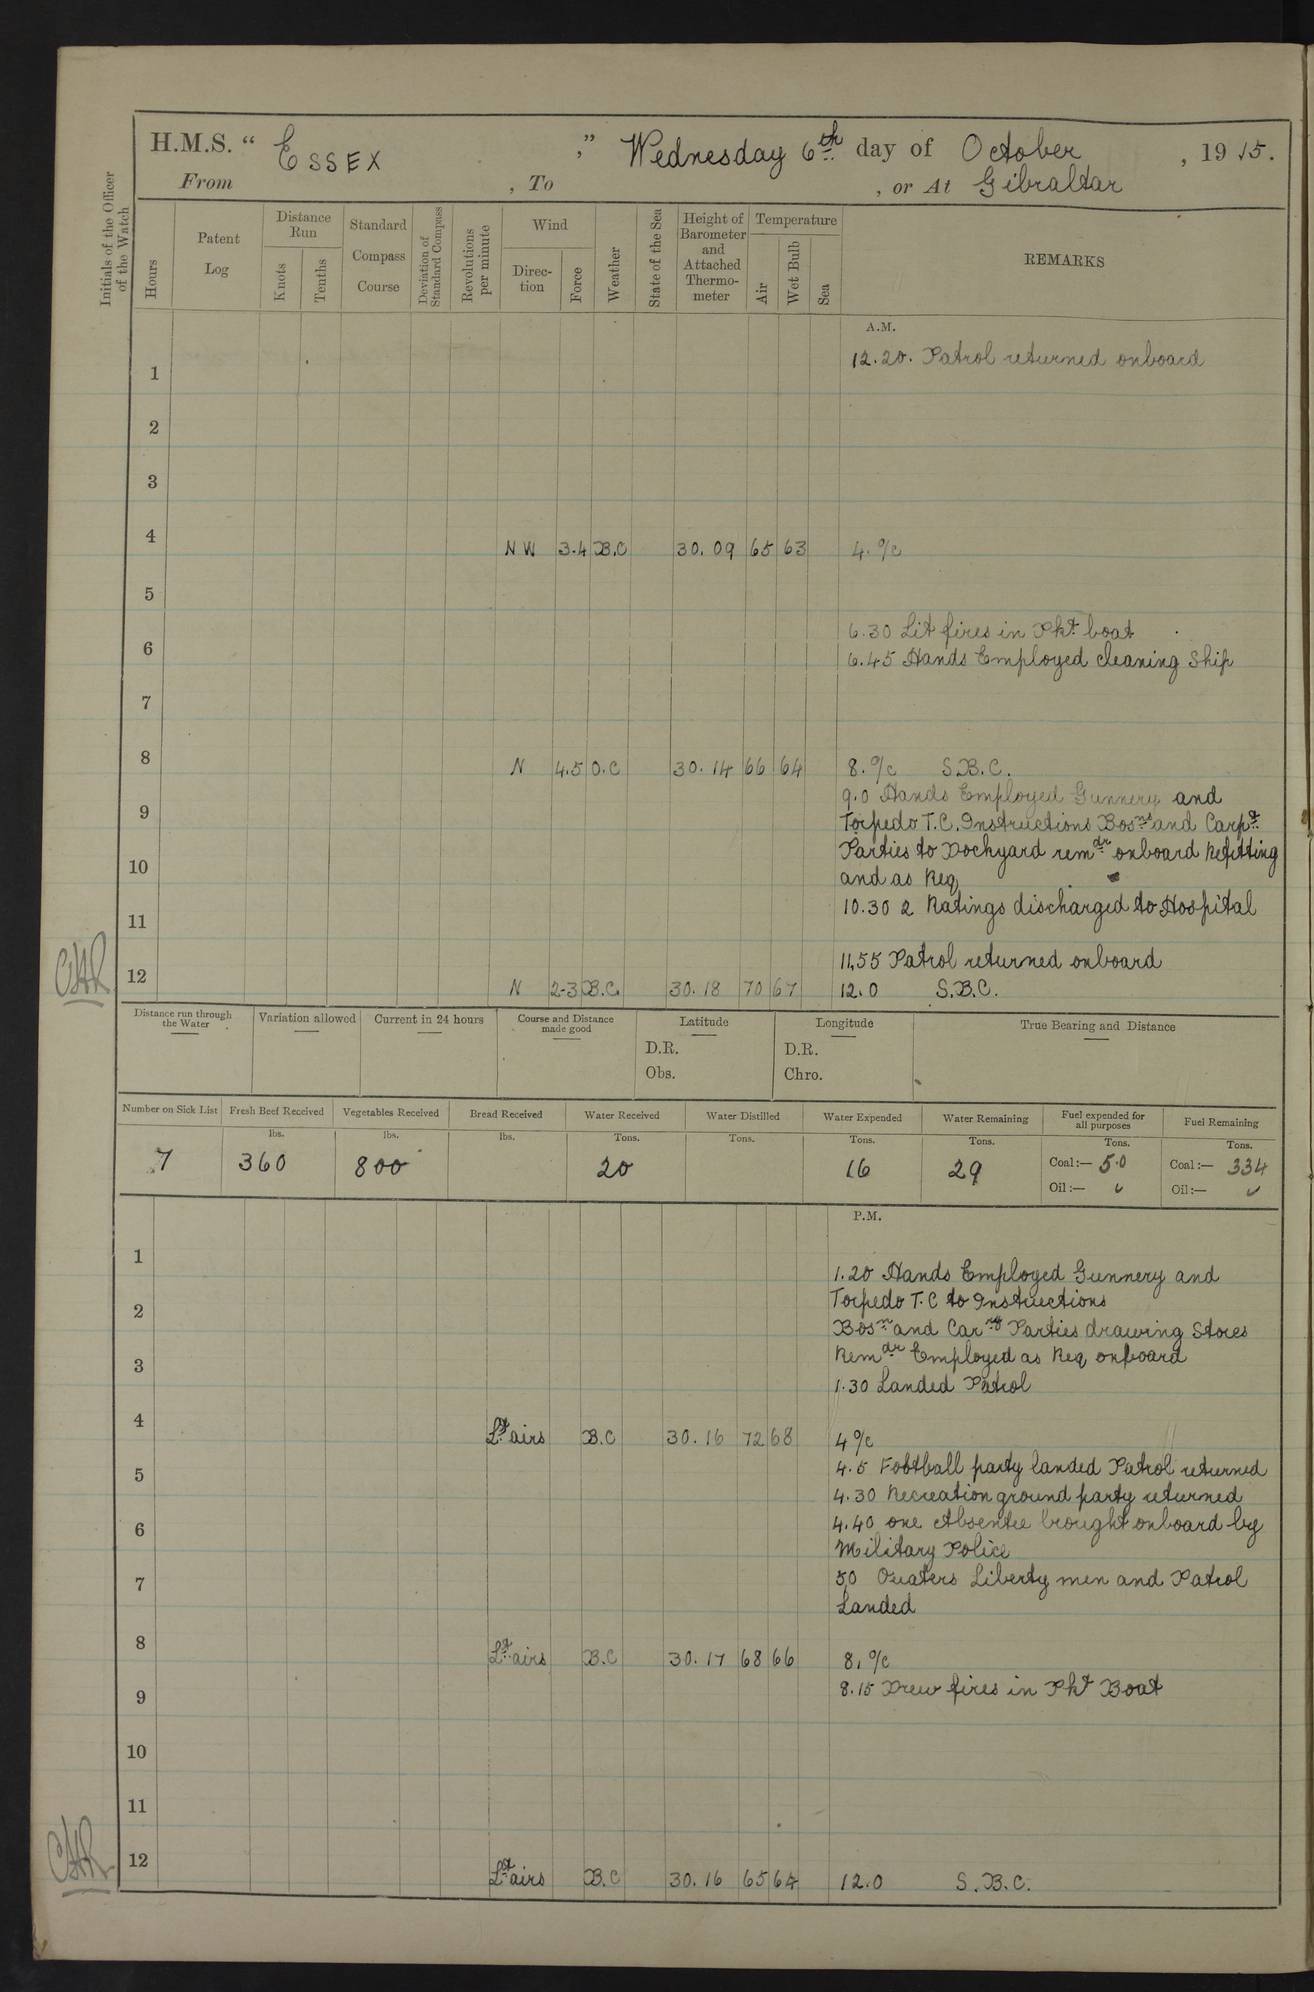 H.M.S. “ Essex ,” Wednesday 6th day of October , 19 15.
From , To , or At Gibraltar
Initials of the Officer of the Watch
Hours
Patent Log
Distance Run
Knots
Tenths
Standard Compass Course
Deviation of Standard Compass
Revolutions per minute
Wind
Direc-tion
Force
Weather
State of the Sea
Height of Barometer and Attached Thermo-meter
Temperature
Air
Wet Bulb
Sea
REMARKS
A.M.
12.20. Patrol returned onboard
1
2
3
4 NW 3.4 B.C 30.09 65 63 4. o/c
5
6.30 Lit fires in Pkt boat
6
6.45 Hands Employed cleaning Ship
7
8 N 4.5 O.C 30.14 66 64 8. o/c S.B.C.
9.0 Hands Employed Gunnery and
9
Torpedo T.C. Instructions Bosns and Carpt
Parties to Dockyard remdr onboard Refitting
10
and as Req
10.30 2 Ratings discharged to Hospital
11
11.55 Patrol returned onboard
12 N 2-3 B.C. 30.18 70 67 12.0 S.B.C.
Distance run through the Water
Variation allowed
Current in 24 hours
Course and Distance made good
Latitude
D.R.
Obs.
Longitude
D.R.
Chro.
True Bearing and Distance
Number on Sick List 7
Fresh Beef Received lbs. 360
Vegetables Received lbs. 800
Bread Received lbs.
Water Received Tons. 20
Water Distilled Tons.
Water Expended Tons. 16
Water Remaining Tons. 29
Fuel expended for all purposes Tons.
Coal:— 5.0
Oil:—
Fuel Remaining Tons.
Coal:— 334
Oil:—
P.M.
1
1.20 Hands Employed Gunnery and
Torpedo T.C to Instructions
2
Bosn and Carns Parties drawing Stores
Remdr Employed as Req onboard
3
1.30 Landed Patrol
4 Lt airs B.C 30.16 72 68 4 o/c
4.5 Football party landed Patrol returned
5
4.30 Recreation ground party returned
4.40 one Absentee brought onboard by
6
Military Police
5.0 Quaters Liberty men and Patrol
7
Landed
8 Lt airs B.C 30.17 68 66 8. o/c
8.15 Drew fires in Pkt Boat
9
10
11
12 Lt airs B.C 30.16 65 64 12.0 S.B.C.